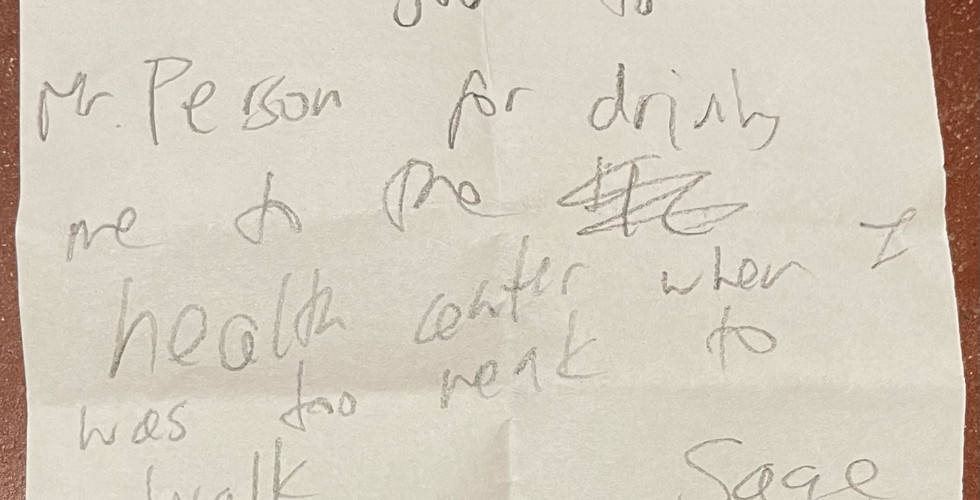 Mr. Person for driving
me to the
health center when I
was too weak to
walk Sage